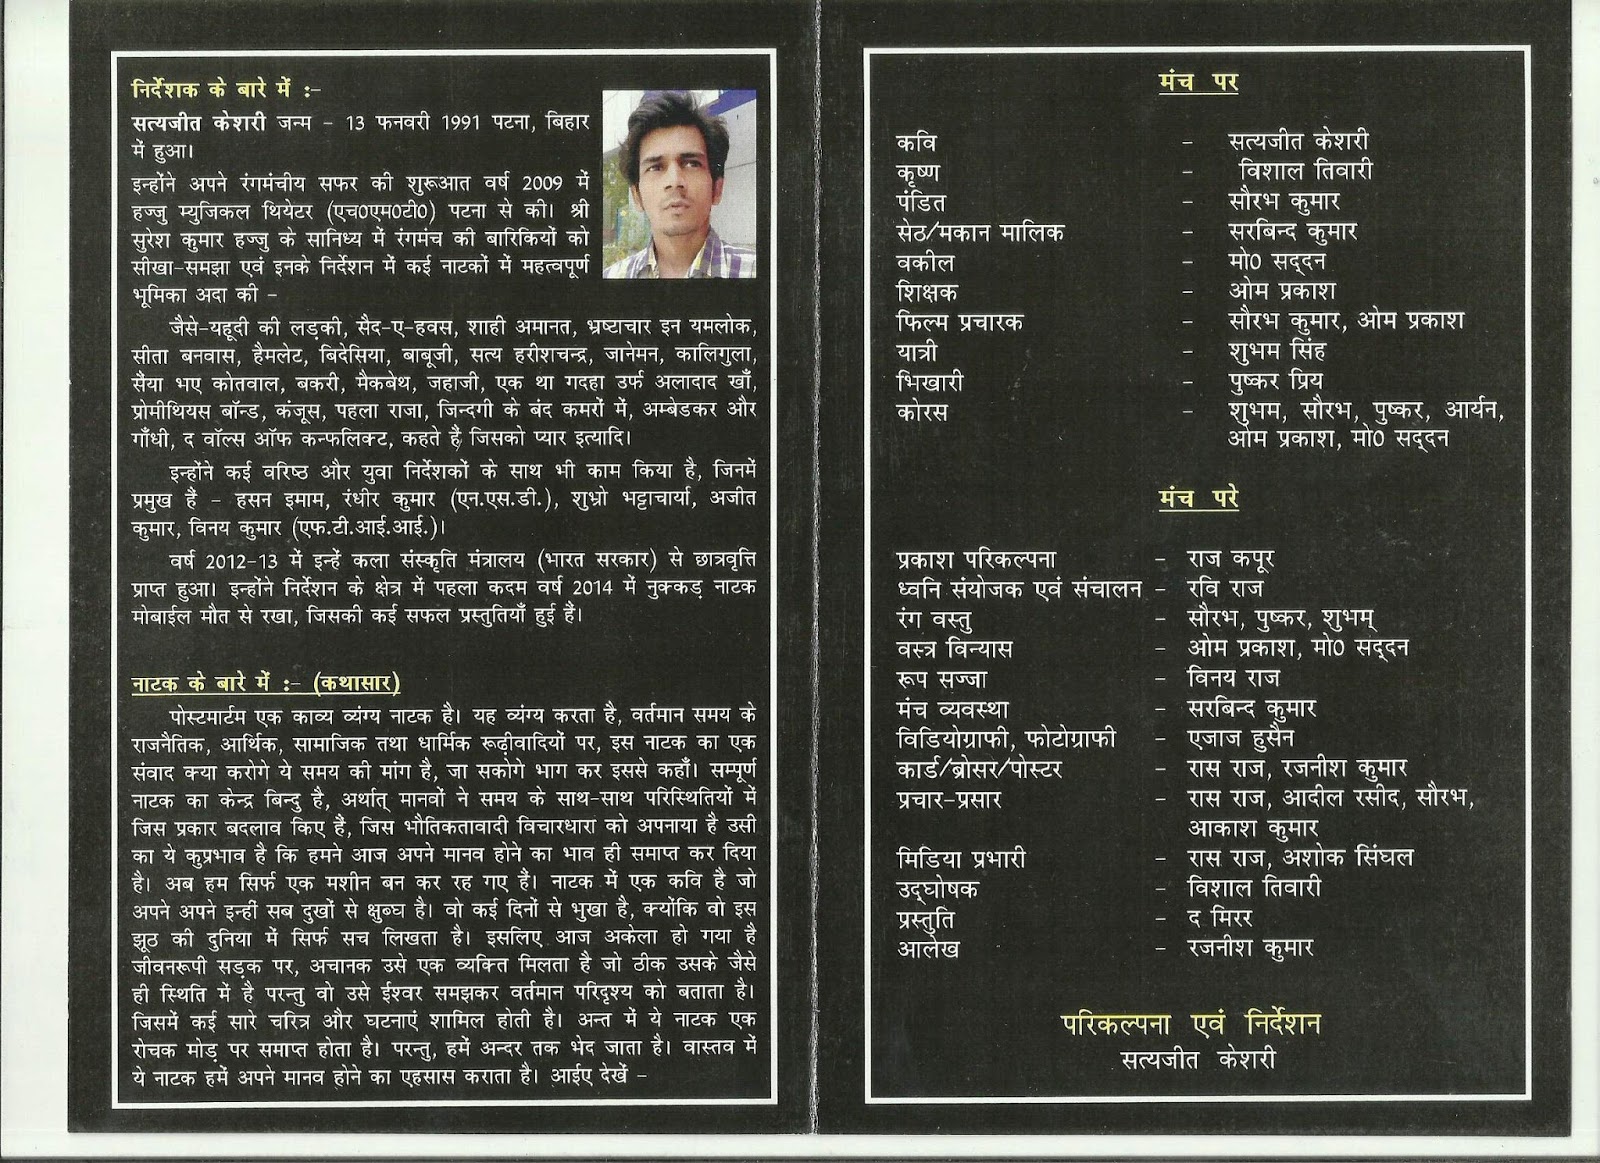 निर्देशक के बारे में :-
सत्यजीत केशरी जन्म - 13 फनवरी 1991 पटना, बिहार
में हुआ।
इन्होंने अपने रंगमंचीय सफर की शुरूआत वर्ष 2009 में
हज्जु म्युजिकल थियेटर (एच0एम0टी0) पटना से की। श्री
सुरेश कुमार हज्जु के सानिध्य में रंगमंच की बारिकियों को
सीखा-समझा एवं इनके निर्देशन में कई नाटकों में महत्वपूर्ण
भूमिका अदा की -
जैसे-यहूदी की लड़की, सैद-ए-हवस, शाही अमानत, भ्रष्टाचार इन यमलोक,
सीता बनवास, हैमलेट, बिदेसिया, बाबूजी, सत्य हरीशचन्द्र, जानेमन, कालिगुला,
सैंया भए कोतवाल, बकरी, मैकबेथ, जहाजी, एक था गदहा उर्फ अलादाद खाँ,
प्रोमीथियस बॉन्ड, कंजूस, पहला राजा, जिन्दगी के बंद कमरों में, अम्बेडकर और
गाँधी, द वॉल्स ऑफ कन्फलिक्ट, कहते हैं जिसको प्यार इत्यादि।
इन्होंने कई वरिष्ठ और युवा निर्देशकों के साथ भी काम किया है, जिनमें
प्रमुख हैं - हसन इमाम, रंधीर कुमार (एन.एस.डी.), शुभ्रो भट्टाचार्या, अजीत
कुमार, विनय कुमार (एफ.टी.आई.आई.)।
वर्ष 2012-13 में इन्हें कला संस्कृति मंत्रालय (भारत सरकार) से छात्रवृत्ति
प्राप्त हुआ। इन्होंने निर्देशन के क्षेत्र में पहला कदम वर्ष 2014 में नुक्कड़ नाटक
मोबाईल मौत से रखा, जिसकी कई सफल प्रस्तुतियाँ हुई हैं।
नाटक के बारे में :- (कथासार)
पोस्टमार्टम एक काव्य व्यंग्य नाटक है। यह व्यंग्य करता है, वर्तमान समय के
राजनैतिक, आर्थिक, सामाजिक तथा धार्मिक रूढ़ीवादियों पर, इस नाटक का एक
संवाद क्या करोगे ये समय की मांग है, जा सकोगे भाग कर इससे कहाँ। सम्पूर्ण
नाटक का केन्द्र बिन्दु है, अर्थात् मानवों ने समय के साथ-साथ परिस्थितियों में
जिस प्रकार बदलाव किए हैं, जिस भौतिकतावादी विचारधारा को अपनाया है उसी
का ये कुप्रभाव है कि हमने आज अपने मानव होने का भाव ही समाप्त कर दिया
है। अब हम सिर्फ एक मशीन बन कर रह गए हैं। नाटक में एक कवि है जो
अपने अपने इन्हीं सब दुखों से क्षुब्घ है। वो कई दिनों से भुखा है, क्योंकि वो इस
झूठ की दुनिया में सिर्फ सच लिखता है। इसलिए आज अकेला हो गया है
जीवनरूपी सड़क पर, अचानक उसे एक व्यक्ति मिलता है जो ठीक उसके जैसे
ही स्थिति में है परन्तु वो उसे ईश्वर समझकर वर्तमान परिदृश्य को बताता है।
जिसमें कई सारे चरित्र और घटनाएं शामिल होती है। अन्त में ये नाटक एक
रोचक मोड़ पर समाप्त होता है। परन्तु, हमें अन्दर तक भेद जाता है। वास्तव में
ये नाटक हमें अपने मानव होने का एहसास कराता है। आईए देखें -
मंच पर
कवि - सत्यजीत केशरी
कृष्ण - विशाल तिवारी
पंडित - सौरभ कुमार
सेठ/मकान मालिक - सरबिन्द कुमार
वकील - मो0 सद्दन
शिक्षक - ओम प्रकाश
फिल्म प्रचारक - सौरभ कुमार, ओम प्रकाश
यात्री - शुभम सिंह
भिखारी - पुष्कर प्रिय
कोरस - शुभम, सौरभ, पुष्कर, आर्यन,
ओम प्रकाश, मो0 सद्दन
मंच परे
प्रकाश परिकल्पना - राज कपूर
ध्वनि संयोजक एवं संचालन - रवि राज
रंग वस्तु - सौरभ, पुष्कर, शुभम्
वस्त्र विन्यास - ओम प्रकाश, मो0 सद्दन
रूप सज्जा - विनय राज
मंच व्यवस्था - सरबिन्द कुमार
विडियोग्राफी, फोटोग्राफी - एजाज हुसैन
कार्ड/ब्रोसर/पोस्टर - रास राज, रजनीश कुमार
प्रचार-प्रसार - रास राज, आदील रसीद, सौरभ,
आकाश कुमार
मिडिया प्रभारी - रास राज, अशोक सिंघल
उद्घोषक - विशाल तिवारी
प्रस्तुति - द मिरर
आलेख - रजनीश कुमार
परिकल्पना एवं निर्देशन
सत्यजीत केशरी